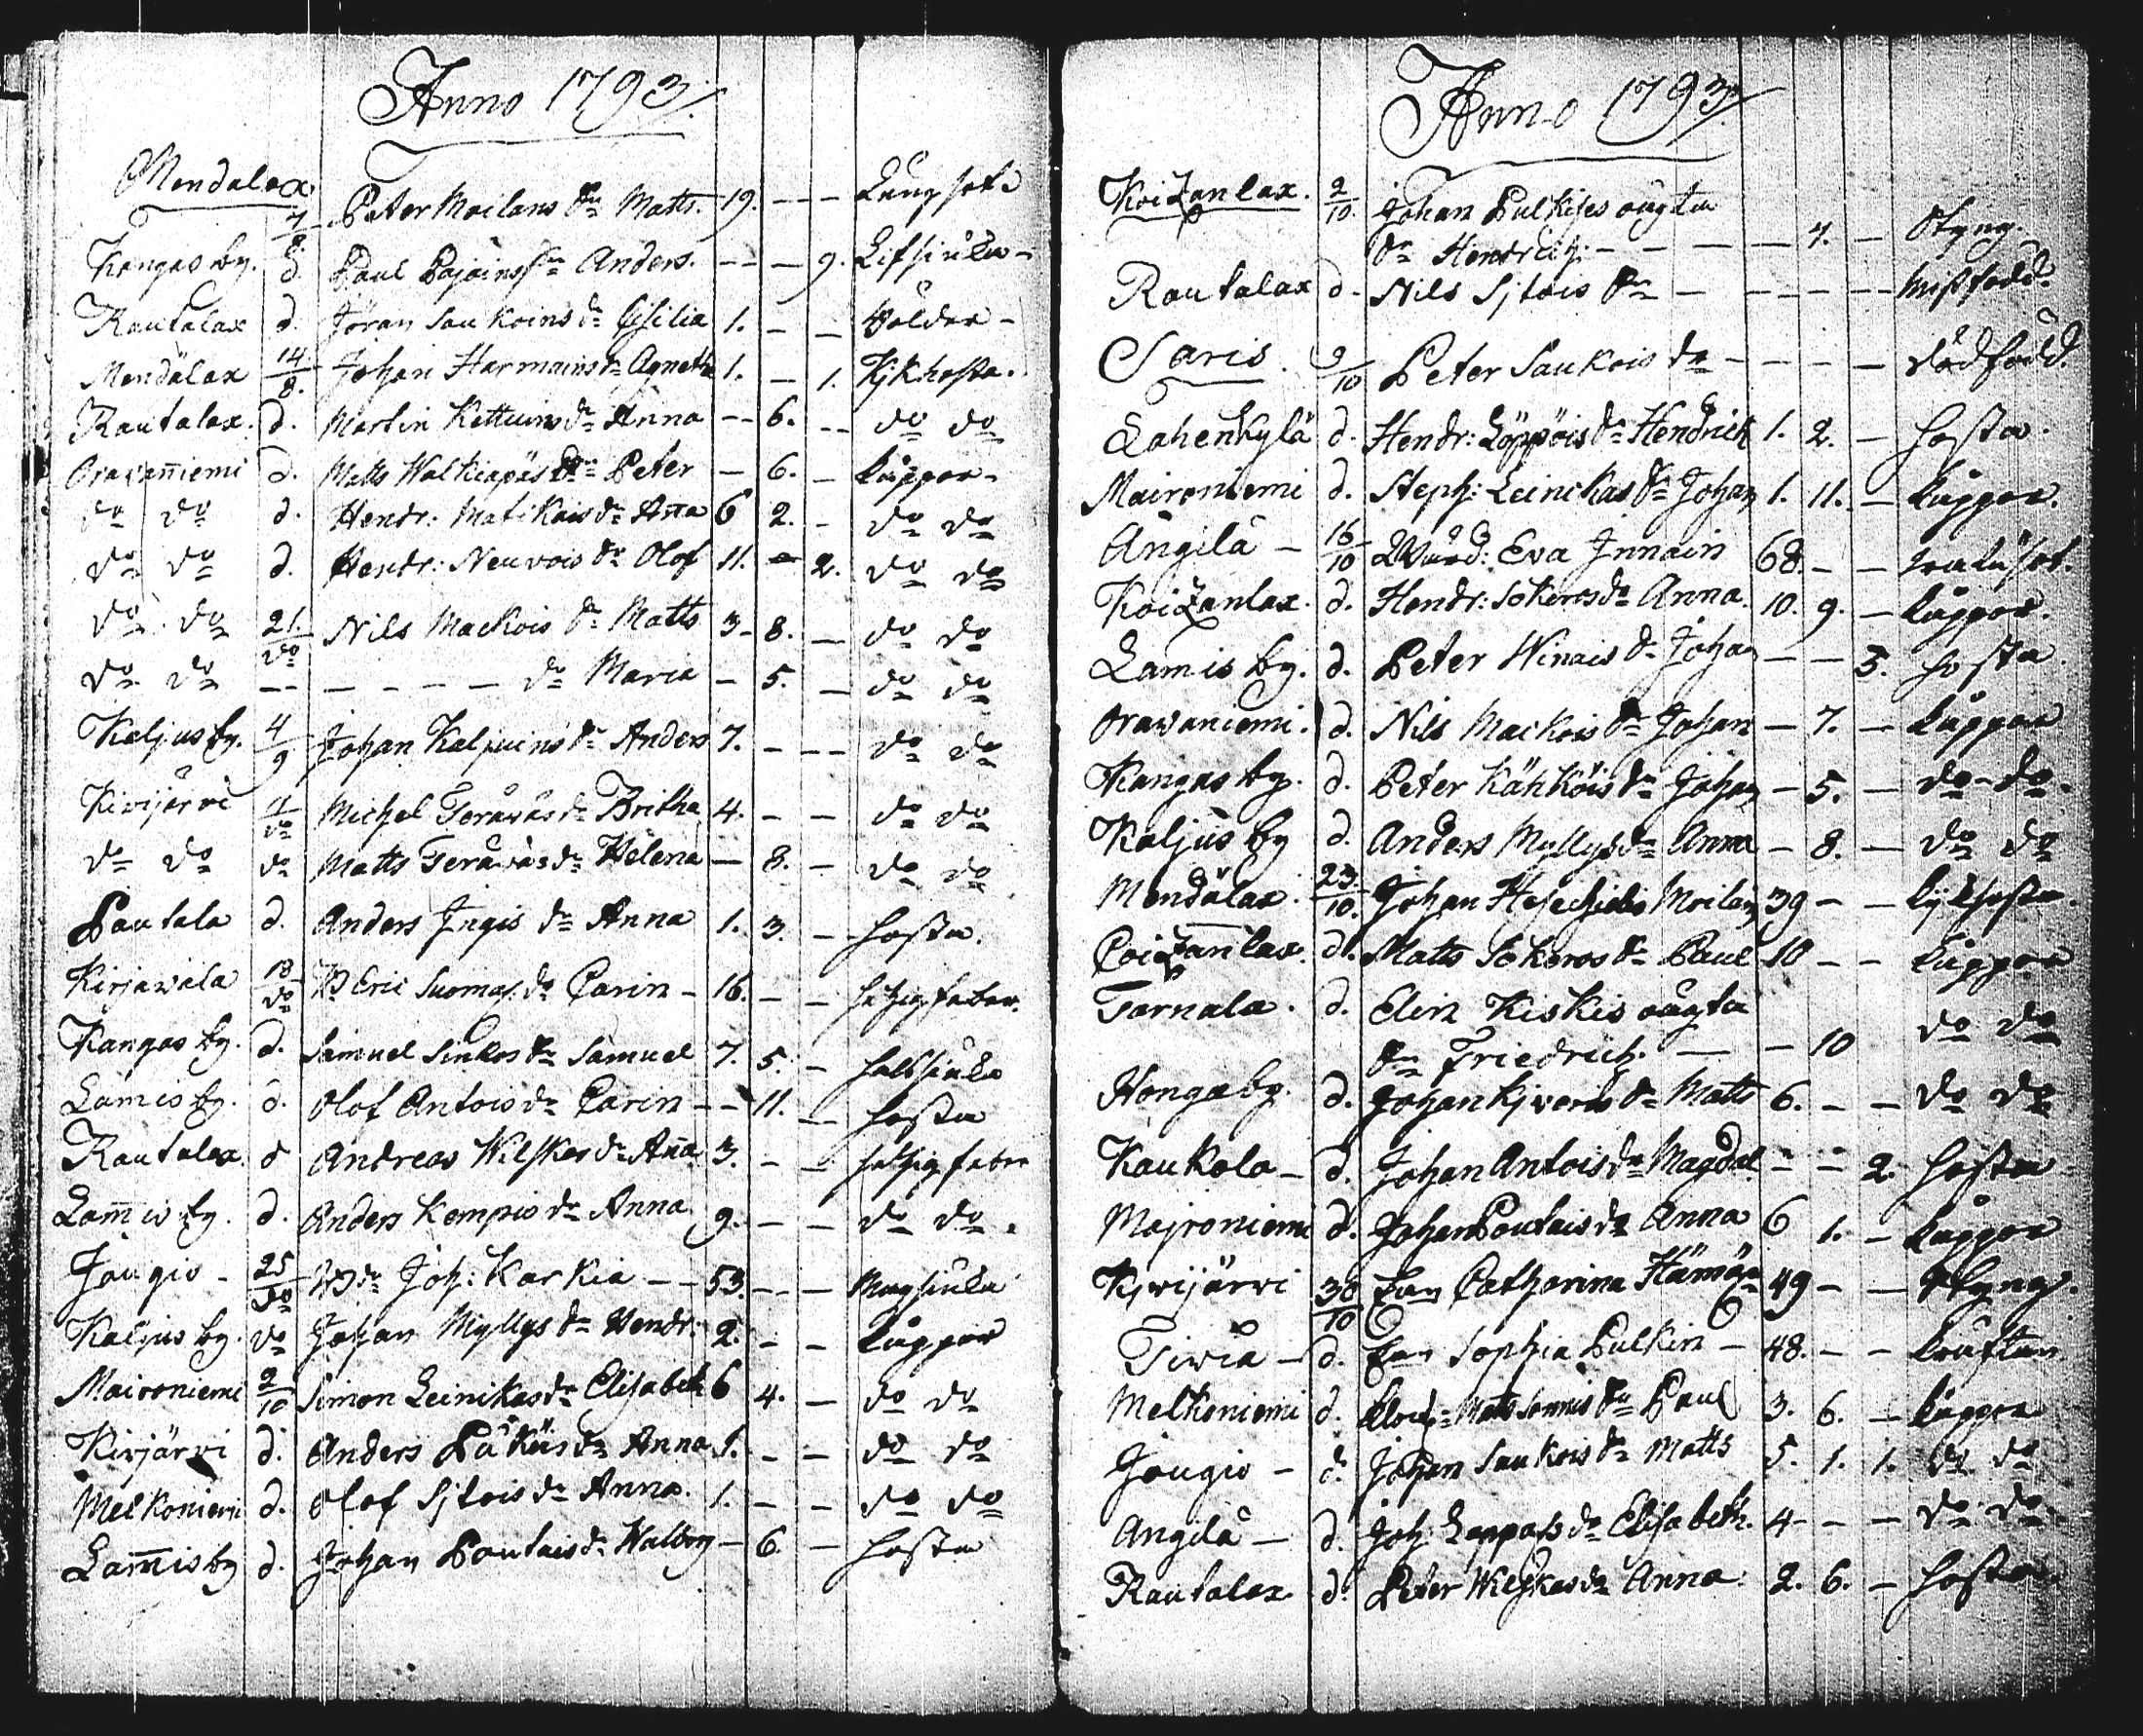 Anno 1793.
Mendalax 7/8 Peter Moilans Sn Matts. 19. - - Lungsot
Kangas by. d. Paul Pajoins Sn Anders. - - 9. Lifsiuka -
Rautalax d. Jöran Saukoins dr Cisilia 1. - - Bölder -
Mendälax 14/8. Johan Harmains dr Agneta 1. - 1. Kjkhosta.
Rautalax. d. Martin Kettuins dr Anna - 6. - do do
Oravaniemi d. Matts Walkiapäs Sn Peter - 6. - Kåppor -
do do d. Hendr: Matikais dr Anna 6 2. - do do
do do d. Hendr: Neuvois Sn Olof 11. - 2. do do
do do 21/do Nils Mackois Sn Matts 3 - 8. - do do
do do - - - - - - dr Maria - 5. - do do
Kaljus by. 4/9 Johan Kaljuins Sn Anders 7. - - do do
Kivijärvi 4/do Michel Teräväs dr Britha 4. - - do do
do do do Matts Teräväs dr Helena - 8. - do do
Pautala d. Anders Ingis dr Anna 1. 3. - hosta.
Kirjawala 18/do Eric Suomas. dr Carin - 16. - - hetzigfeber.
Kangas by. d. Samuel Sinkos Sn Samuel 7. 5. - halssiuka
Lamis by. d. Olof Antois dr Carin - - 11. - hosta
Rautalax. d Andreas Wilskas dr Anna 3. - - hetzigfeber
Lamis by. d. Anders Kempis dr Anna 9. - - do do.
Jougio - 25/do Joh: Karkia - - 53. - - Magsiuka
Kaljus by. do Johan Myllys Sn Hendr: 2. - - Kåppor
Maironiemi 2/10 Simon Leinikas dr Elisabeth 6 4. - do do
Kivjärvi d. Anders Anna 1. - - do do
Melkoniemi d. Olof Sjtois dr Anna. 1. - - do do
Lamis by d. Johan Poutais dr Walborg - 6. - hosta
Anno 1793.
Koitzanlax. 2/10. Johan Pulkises oägta
Sn Hendrich. - - - - 4. - Styng.
Rautalax d. Nils Sjtois Sn - - - - - Missfödd.
Saris. 9/10 Peter Saukois dr - - - - dödfödd.
Lahenkylä d. Hendr: Löppöis Sn Hendrich 1. 2. - hosta.
Maironiemi d. Steph: Leinikas Sn Johan 1. 11. - Kåppor.
Ängilä - 16/10 Eva Innain 68. - -
Koitzanlax. d. Hendr: Sokeros dr Anna. 10. 9. - Kåppor.
Lamis by. d. Peter Winais Sn Johan - - 3. hosta.
Orawaniemi. d. Nils Mackois Sn Johan - 7. - Kåppor
Kangas by. d. Peter Kähköis Sn Johan - 5. - do - do.
Kaljus by d. Anders Myllys dr Anna - 8. - do do
Mendälax. 23/10. Johan Moilain 39 - - Kjkhosta.
Coitzanlax. d. Matts Sokeros Sn Paul 10 - - Kåppor
Tarnala. d. Elin Kiskis oägta
Sn Friedrich. - - 10 do do
Honga by. d. Johan Sn Matts 6. - - do do
Kaukola - d. Johan Antois dr Magdal. - - 2. hosta
Majroniemi d. Johan Poutais dr Anna 6 1. - Kåppor
Kjvijärvi 30/10 Catharina Hämöin 49 - - Styng.
Tiviä - d. Sophia Pulkin - 48. - - Kräftan
Melkoniemi d. Matts Sn Paul 3. 6. - Kåppor
Jougio - d. Johan Saukois Sn Matts 5. 1. 1. do do
Angilä - d. Joh: Lappals dr Elisabeth. 4 - - - do do
Rautalax d. Peter Wilskas dr Anna. 2. 6. - hosta.